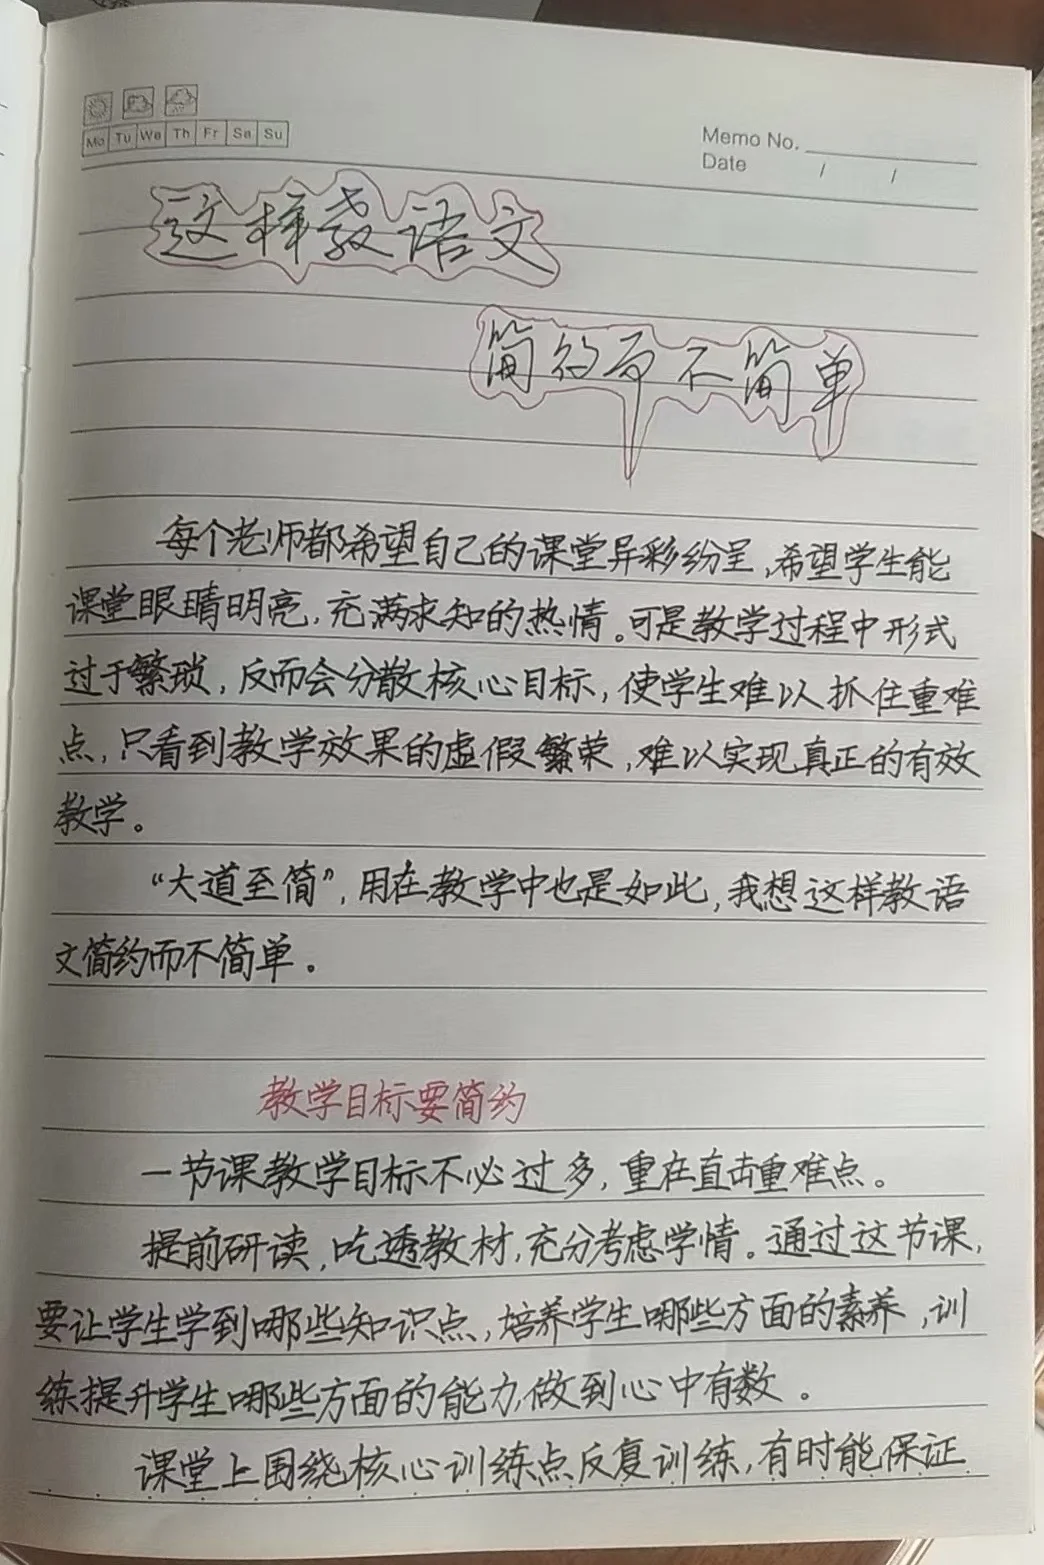 Mo Tu We Th Fr Sa Su
Memo No.
Date / /
这样教语文
简约而不简单
每个老师都希望自己的课堂异彩纷呈,希望学生能
课堂眼睛明亮,充满求知的热情。可是教学过程中形式
过于繁琐,反而会分散核心目标,使学生难以抓住重难
点,只看到教学效果的虚假繁荣,难以实现真正的有效
教学。
“大道至简”,用在教学中也是如此,我想这样教语
文简约而不简单。
教学目标要简约
一节课教学目标不必过多,重在直击重难点。
提前研读,吃透教材,充分考虑学情。通过这节课,
要让学生学到哪些知识点,培养学生哪些方面的素养,训
练提升学生哪些方面的能力,做到心中有数。
课堂上围绕核心训练点反复训练,有时能保证